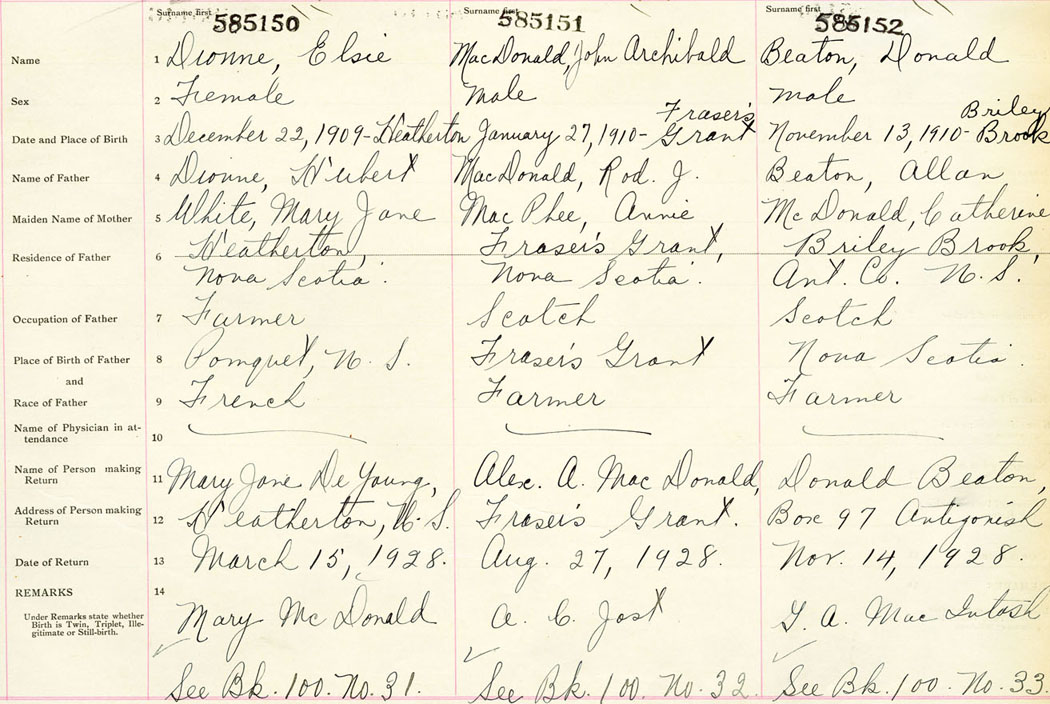 Surname first 585150 Surname first 585151 Surname first 585152
Name 1 Dionne, Elsie MacDonald, John Archibald Beaton, Donald
Sex 2 Female Male Male
Fraser's Briley
Date and Place of Birth 3 December 22, 1909-Heatherton January 27, 1910- Grant November 13, 1910- Brook
Name of Father 4 Dionne, Hubert MacDonald, Rod. J. Beaton, Allan
Maiden Name of Mother 5 White, Mary Jane MacPhee, Annie McDonald, Catherine
Residence of Father 6 Heatherton, Fraser's Grant, Briley Brook,
Nova Scotia. Nova Scotia. Ant. Co. N. S.
Occupation of Father 7 Farmer Scotch Scotch
Place of Birth of Father 8 Pomquet, N. S. Fraser's Grant Nova Scotia.
and
Race of Father 9 French Farmer Farmer
Name of Physician in at-
tendance 10
Name of Person making
Return 11 Mary Jane DeYoung, Alex. A. MacDonald, Donald Beaton,
Address of Person making
Return 12 Heatherton, N. S. Fraser's Grant. Box 97 Antigonish
Date of Return 13 March 15, 1928. Aug. 27, 1928. Nov. 14, 1928.
REMARKS 14
Under Remarks state whether
Birth is Twin, Triplet, Ille-
gitimate or Still-birth.
Mary McDonald A. C. Jost Y. A. MacIntosh
See Bk. 100. No. 31. See Bk. 100. No. 32. See Bk. 100. No. 33.